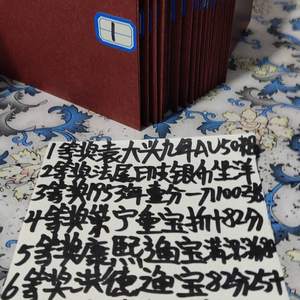 1
1等奖袁大头九年AU50
2等奖法属印支银币坐洋
3等奖1953年壹分一刀100张
4等奖崇宁重宝折十82分
5等奖康熙通宝满汉
6等奖洪德通宝82分25